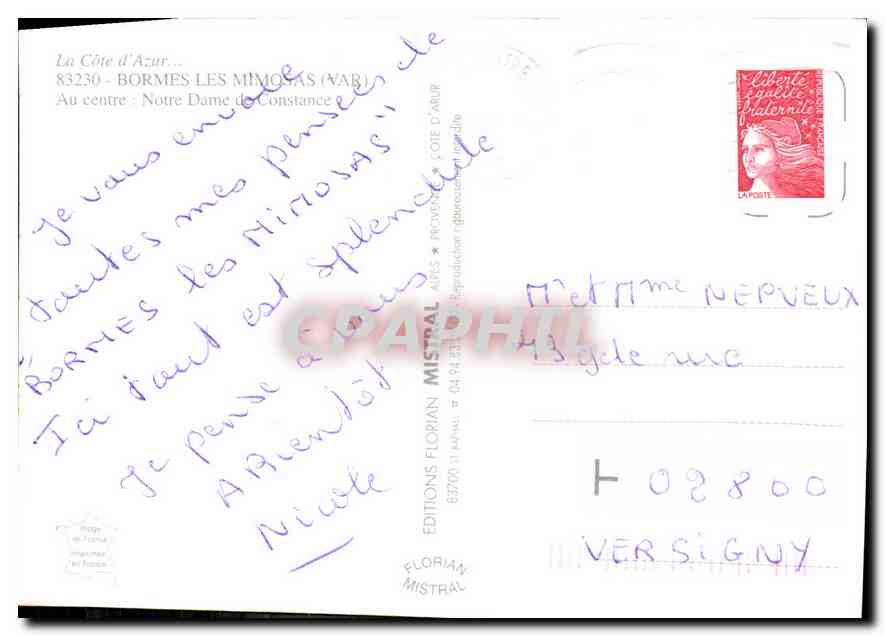 La Côte d'Azur...
83230 - BORMES LES MIMOSAS (VAR)
Au centre : Notre Dame de Constance
Je vous envoie
toutes mes pensées de
"BORMES les MIMOSAS"
Ici tout est splendide
Je pense à vous
A Bientôt
Nicole
Image
de France
Imprimée
en France
EDITIONS FLORIAN MISTRAL ALPES ★ PROVENCE ★ COTE D'AZUR
83700 ST RAPHAEL ☎ 04.94.83 Reproduction rigoureusement interdite
FLORIAN
MISTRAL
CPAPHIL
liberté
égalité
fraternité
REPUBLIQUE FRANÇAISE
LA POSTE
Mr et Mme NEPVEUX
13 gde rue
T 02800
VERSIGNY